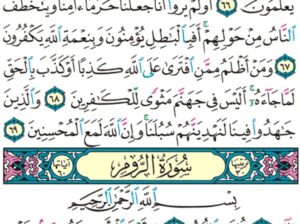 يَعْلَمُونَ ٦٦ أَوَلَمْ يَرَوْا۟ أَنَّا جَعَلْنَا حَرَمًا ءَامِنًا وَيُتَخَطَّفُ
ٱلنَّاسُ مِنْ حَوْلِهِمْ أَفَبِٱلْبَٰطِلِ يُؤْمِنُونَ وَبِنِعْمَةِ ٱللَّهِ يَكْفُرُونَ
٦٧ وَمَنْ أَظْلَمُ مِمَّنِ ٱفْتَرَىٰ عَلَى ٱللَّهِ كَذِبًا أَوْ كَذَّبَ بِٱلْحَقِّ
لَمَّا جَآءَهُۥٓ أَلَيْسَ فِى جَهَنَّمَ مَثْوًى لِّلْكَٰفِرِينَ ٦٨ وَٱلَّذِينَ
جَٰهَدُوا۟ فِينَا لَنَهْدِيَنَّهُمْ سُبُلَنَا وَإِنَّ ٱللَّهَ لَمَعَ ٱلْمُحْسِنِينَ ٦٩
سُورَةُ ٱلرُّومِ
بِسْمِ ٱللَّهِ ٱلرَّحْمَٰنِ ٱلرَّحِيمِ